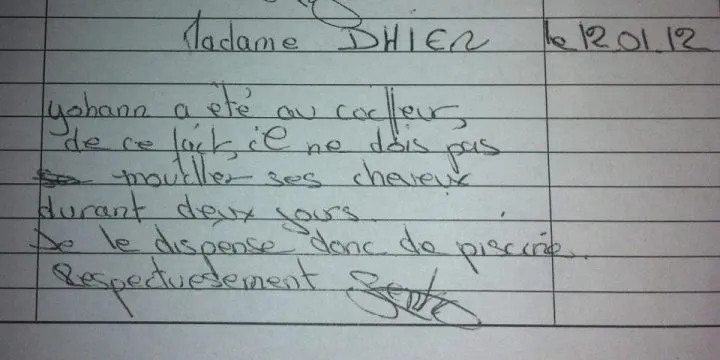 Madame DHIER le 12.01.12
Yohann a été au coclleur,
de ce fait, il ne dois pas
mouiller ses cheveux
durant deux jours.
Je le dispense donc de piscine.
Respectuesement